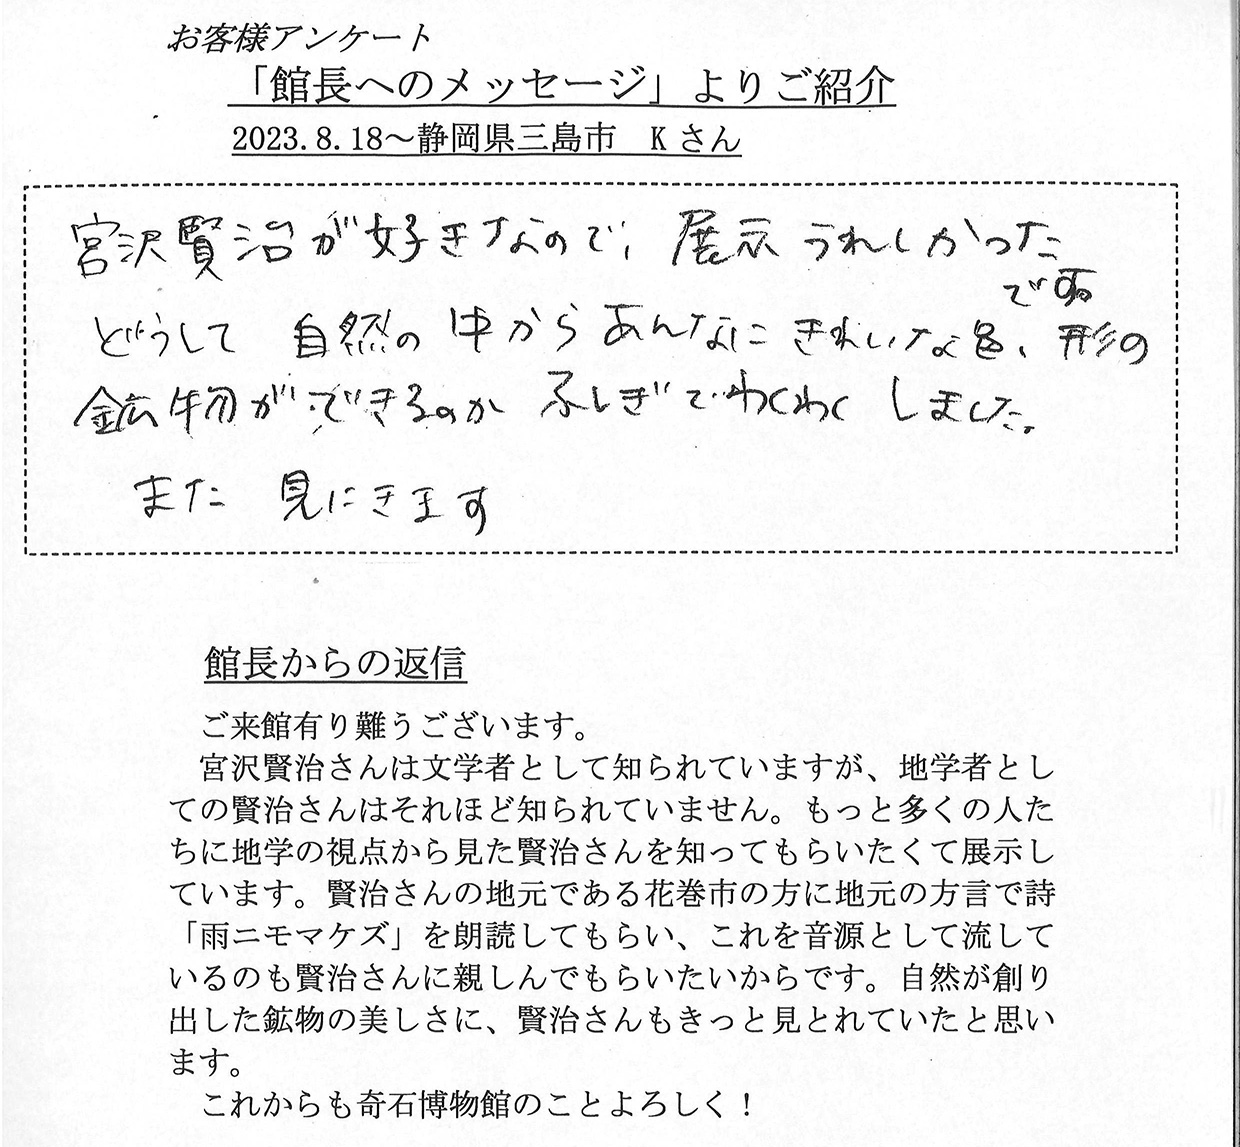 お客様アンケート
「館長へのメッセージ」よりご紹介
2023.8.18～静岡県三島市　Kさん
宮沢賢治が好きなので、展示うれしかった
です
どうして 自然の中からあんなにきれいな色、形の
鉱物ができるのか ふしぎでわくわく しました。
また 見にきます
館長からの返信
ご来館有り難うございます。
宮沢賢治さんは文学者として知られていますが、地学者とし
ての賢治さんはそれほど知られていません。もっと多くの人た
ちに地学の視点から見た賢治さんを知ってもらいたくて展示し
ています。賢治さんの地元である花巻市の方に地元の方言で詩
「雨ニモマケズ」を朗読してもらい、これを音源として流して
いるのも賢治さんに親しんでもらいたいからです。自然が創り
出した鉱物の美しさに、賢治さんもきっと見とれていたと思い
ます。
これからも奇石博物館のことよろしく！